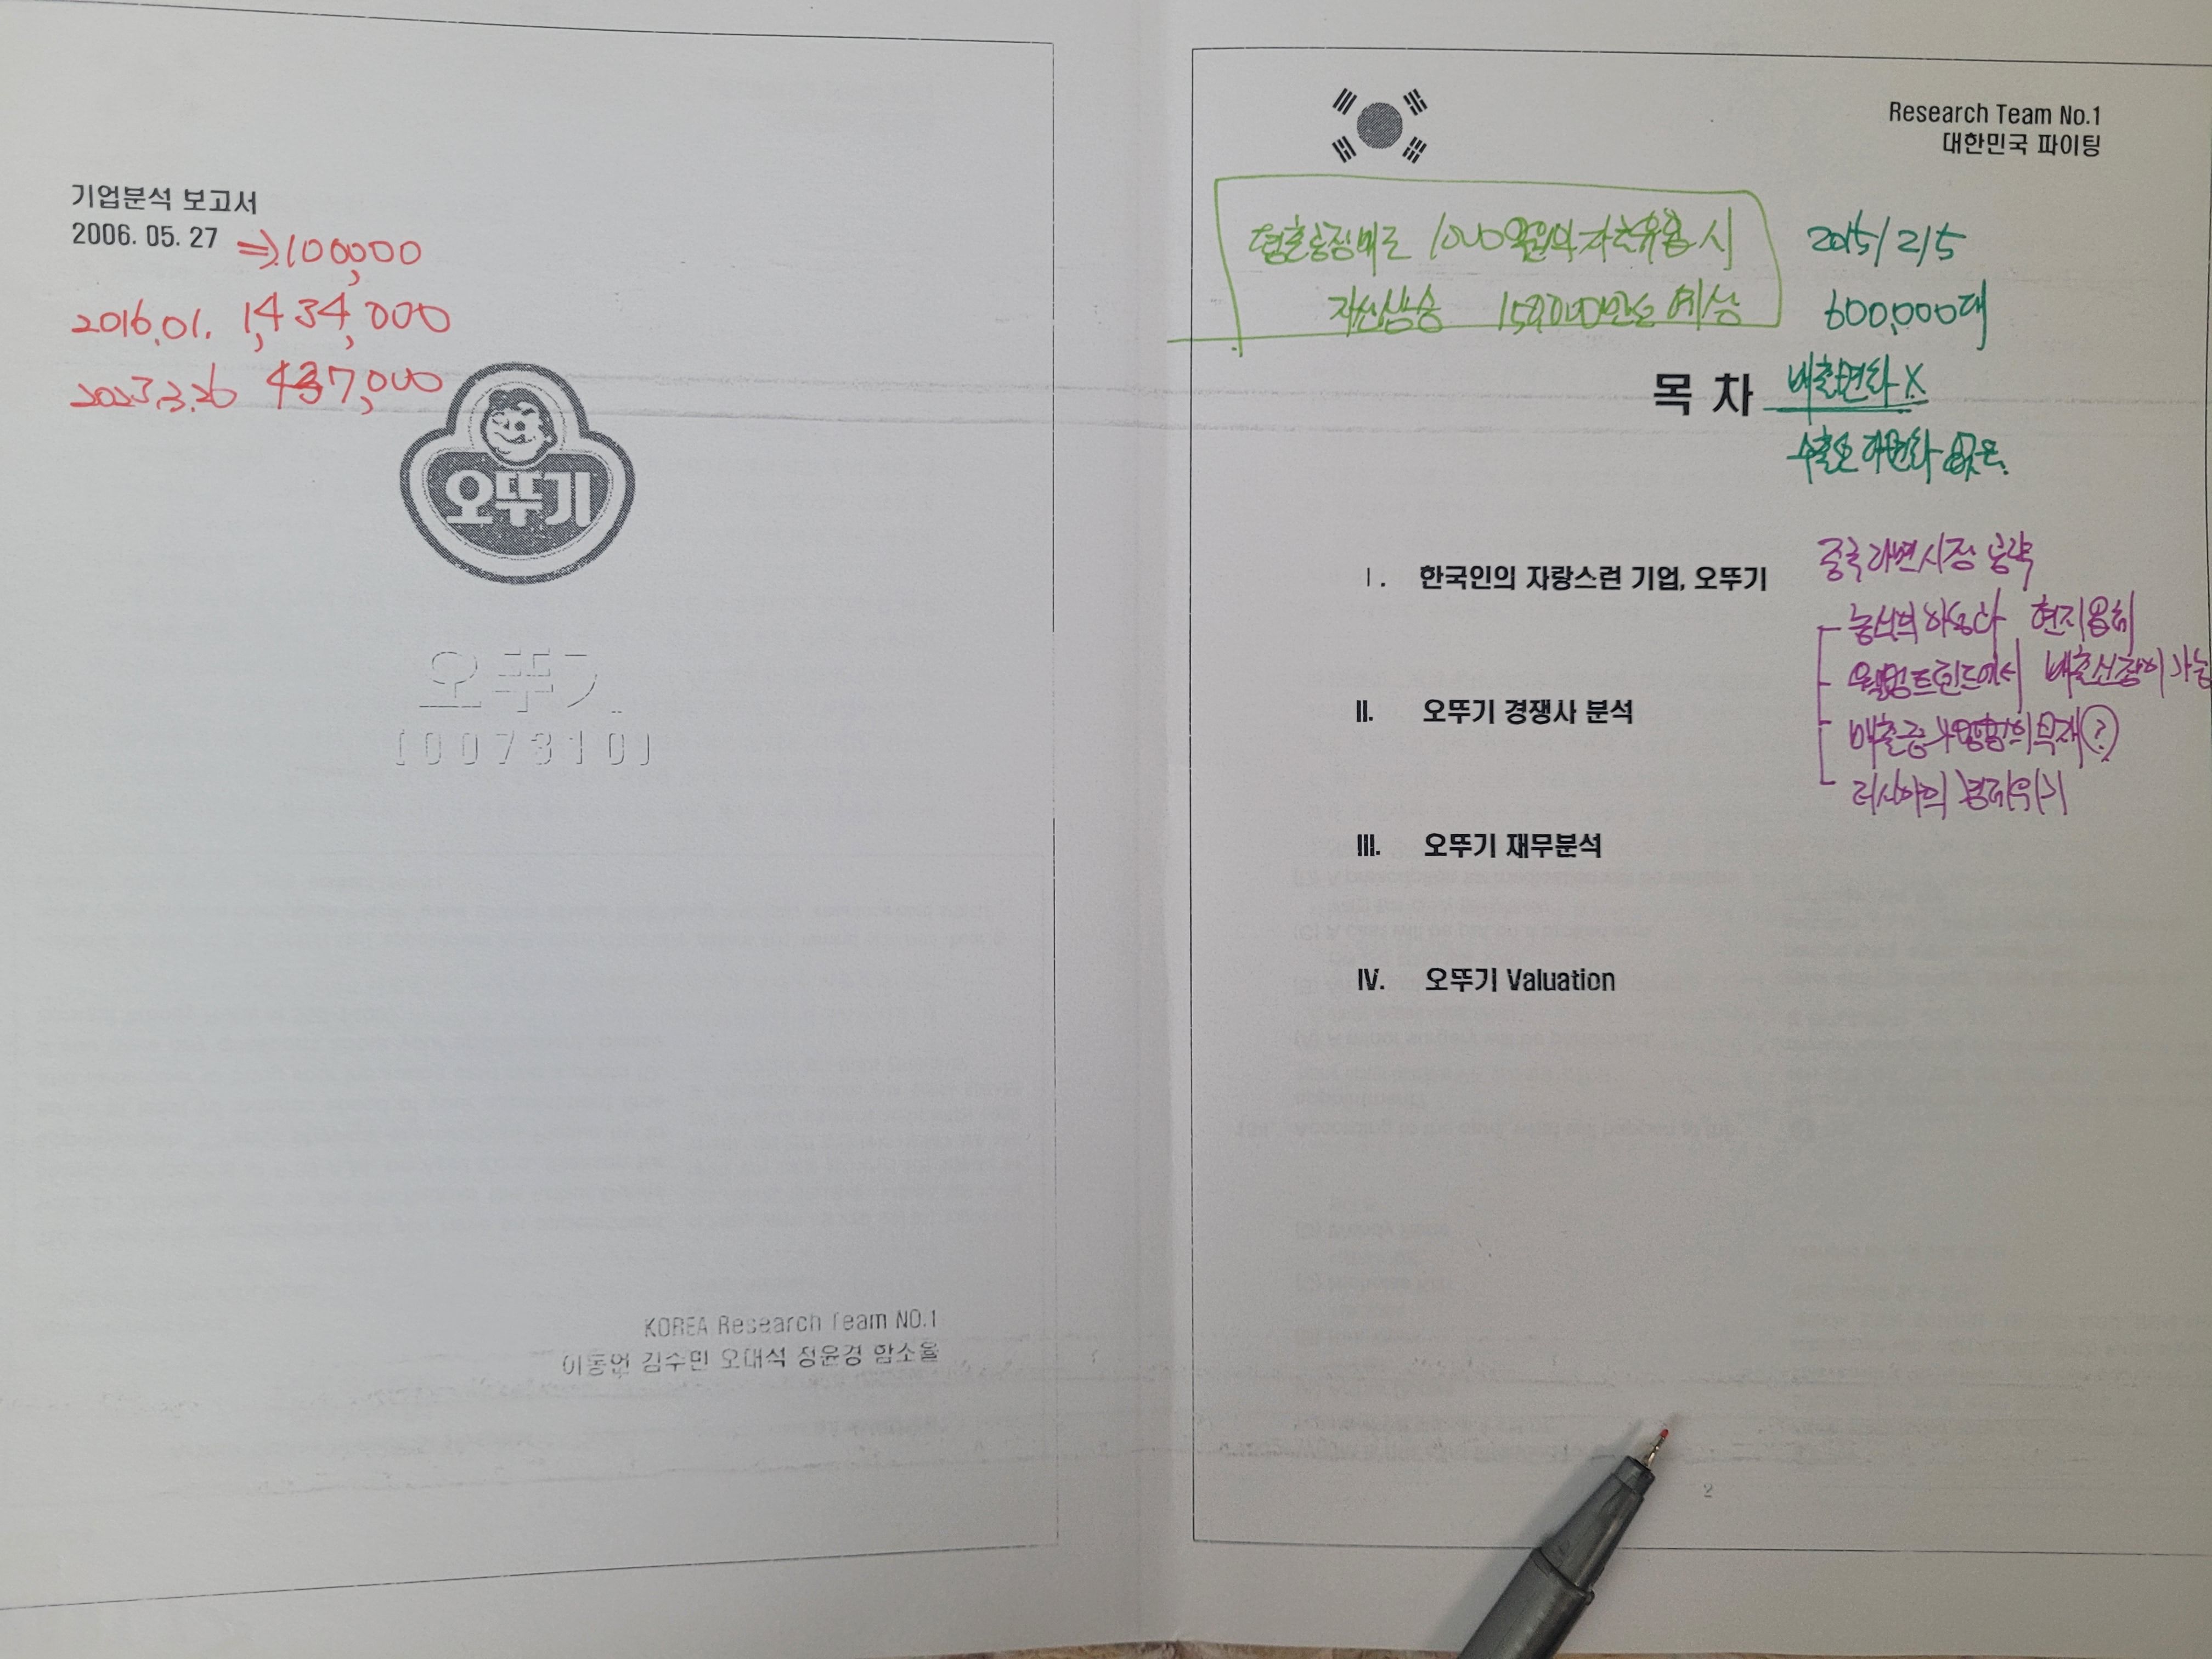 기업분석 보고서
2006. 05. 27 ⇒ 100,000
2016.01. 1,434,000
2023.3.26 437,000
오뚜기
오뚜기
(007310)
KOREA Research Team NO.1
이동언 김수민 오대석 정윤경 함소율
Research Team No.1
대한민국 파이팅
1000억원의 자산유용시
예상
2015/2/5
600,000대
목 차
매출변화 X
Ⅰ. 한국인의 자랑스런 기업, 오뚜기
중국라면시장 공략
농심의 하송다 현지업체
에서 매출신장이 가능
Ⅱ. 오뚜기 경쟁사 분석
매출증가 영향의 부재(?)
러시아의 경제위기
Ⅲ. 오뚜기 재무분석
Ⅳ. 오뚜기 Valuation
2